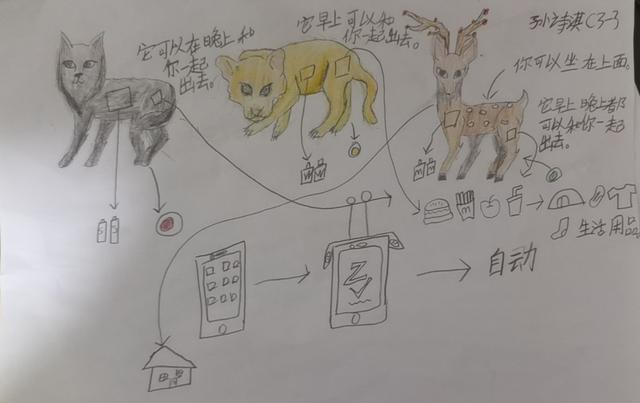 孙诗淇(3-3
它可以在晚上和
你一起
出去。
它早上可以和
你一起出去。
你可以坐在上面。
它早上晚上都
可以和你一起
出去。
生活用品
自动